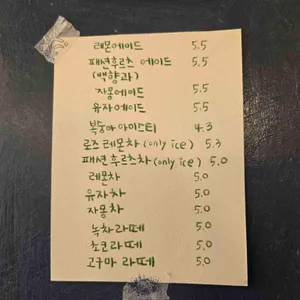 레몬에이드 5.5
패션후르츠 에이드 5.5
(백향과)
자몽에이드 5.5
유자에이드 5.5
복숭아 아이스티 4.3
로즈 레몬차 (only ice) 5.3
패션후르츠차 (only ice) 5.0
레몬차 5.0
유자차 5.0
자몽차 5.0
녹차라떼 5.0
초코라떼 5.0
고구마 라떼 5.0